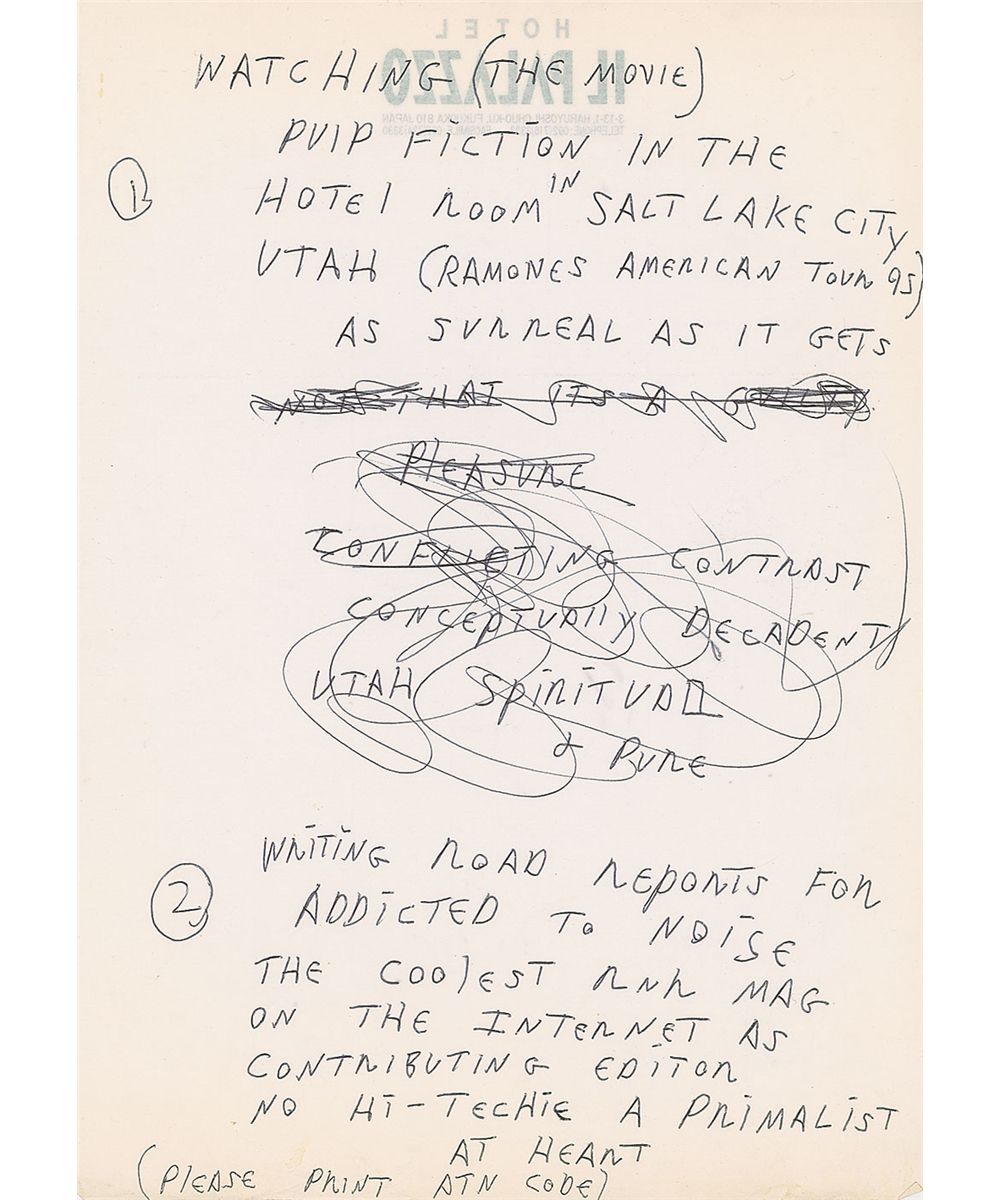 HOTEL
IL PALAZZO
3-13-1, HARUYOSHI, CHUO-KU, FUKUOKA 810 JAPAN
WATCHING (THE MOVIE)
PULP FICTION IN THE
1. HOTEL ROOM IN SALT LAKE CITY,
UTAH (RAMONES AMERICAN TOUR 95)
AS SURREAL AS IT GETS
THAT ITS A
PLEASURE
CONFLICTING CONTRAST
CONCEPTUALLY DECADENT
UTAH SPIRITUAL
& PURE
WRITING ROAD REPORTS FOR
2 ADDICTED TO NOISE
THE COOLEST RNR MAG
ON THE INTERNET AS
CONTRIBUTING EDITOR
NO HI-TECHIE A PRIMALIST
AT HEART
(PLEASE PRINT ATN CODE)